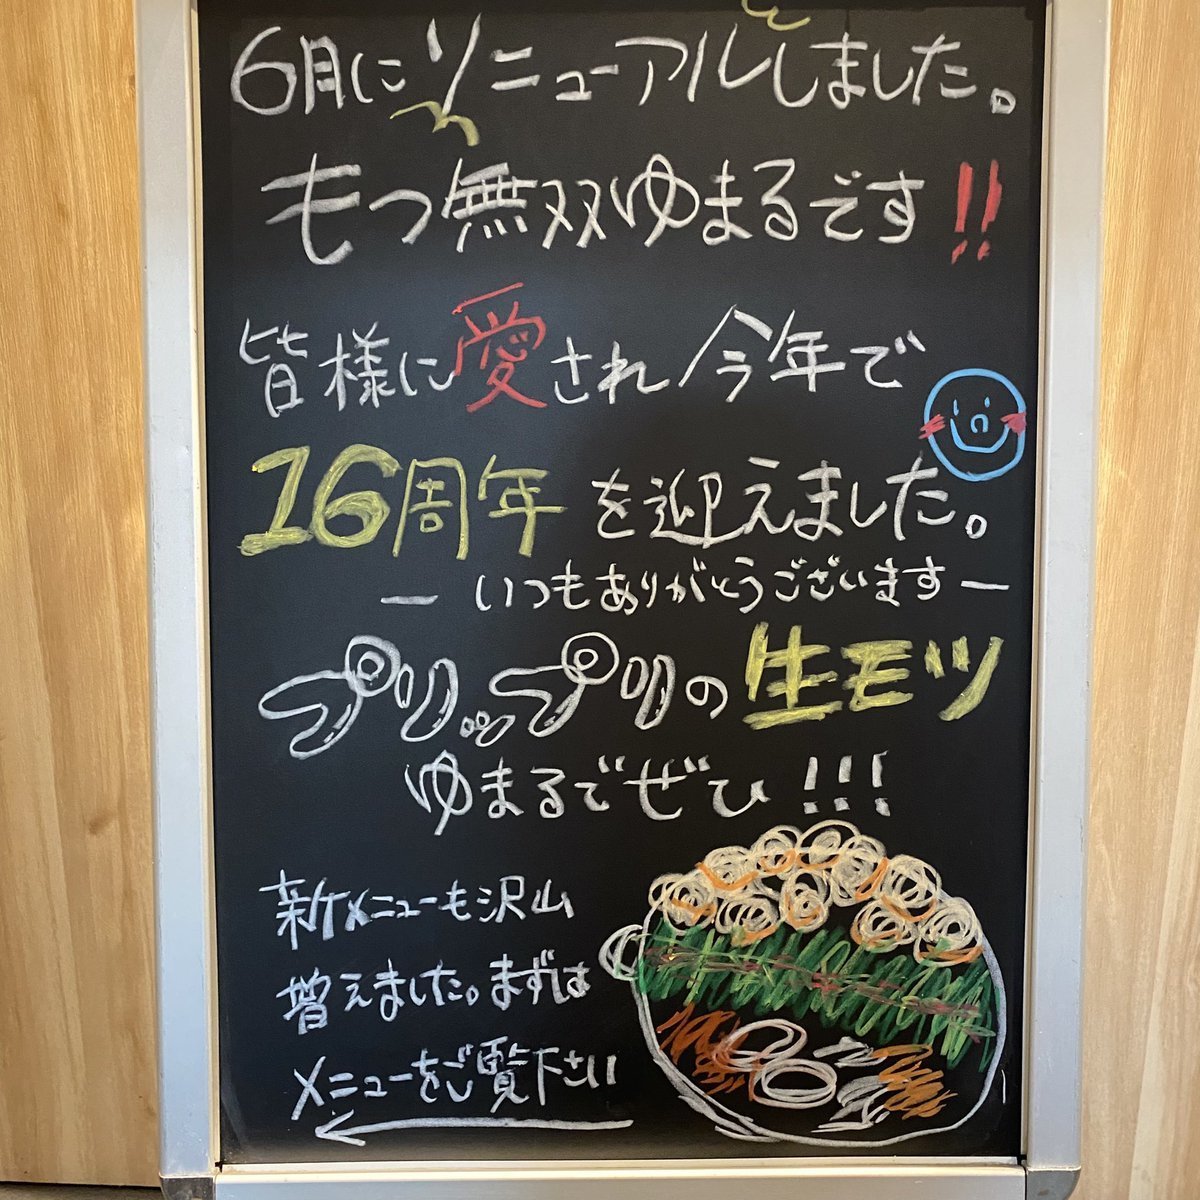 6月にリニューアルしました。
もつ無双ゆまるです!!
皆様に愛され今年で
16周年を迎えました。
— いつもありがとうございます —
プリップリの生モツ
ゆまるでぜひ!!!
新メニューも沢山
増えました。まずは
メニューをご覧下さい